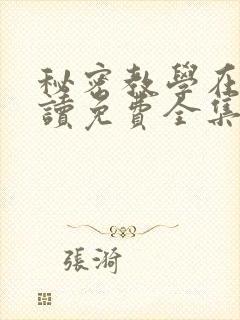 秘密教學在
讀免費全集
張漪